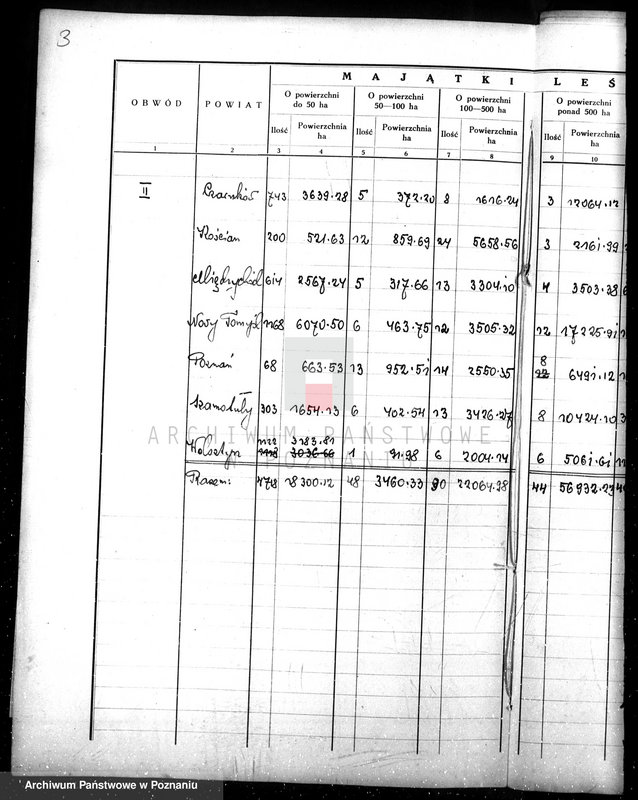 3
M A J Ą T K I L E Ś
OBWÓD POWIAT O powierzchni do 50 ha O powierzchni 50—100 ha O powierzchni 100—500 ha O powierzchni ponad 500 ha
Ilość Powierzchnia ha Ilość Powierzchnia ha Ilość Powierzchnia ha Ilość Powierzchnia ha
1 2 3 4 5 6 7 8 9 10
II Czarnków 743 3639.28 5 372.20 8 1616.24 3 12064.12
Kościan 200 521.63 12 859.69 24 5658.56 3 2161.99
Międzychód 614 2567.24 5 317.66 13 3304.10 4 3503.38
Nowy Tomyśl 1168 6070.50 6 463.75 12 3505.32 12 17225.91
Poznań 68 663.53 13 952.51 14 2550.35 8 6491.12
Szamotuły 303 1654.13 6 402.54 13 3426.27 8 10424.10
Wolsztyn 1122 3183.81 1 91.98 6 2004.14 6 5061.61
Razem: 18300.12 48 3460.33 90 22064.98 44 56932.23
ARCHIWUM PAŃSTWOWE
POZNAŃ
Archiwum Państwowe w Poznaniu